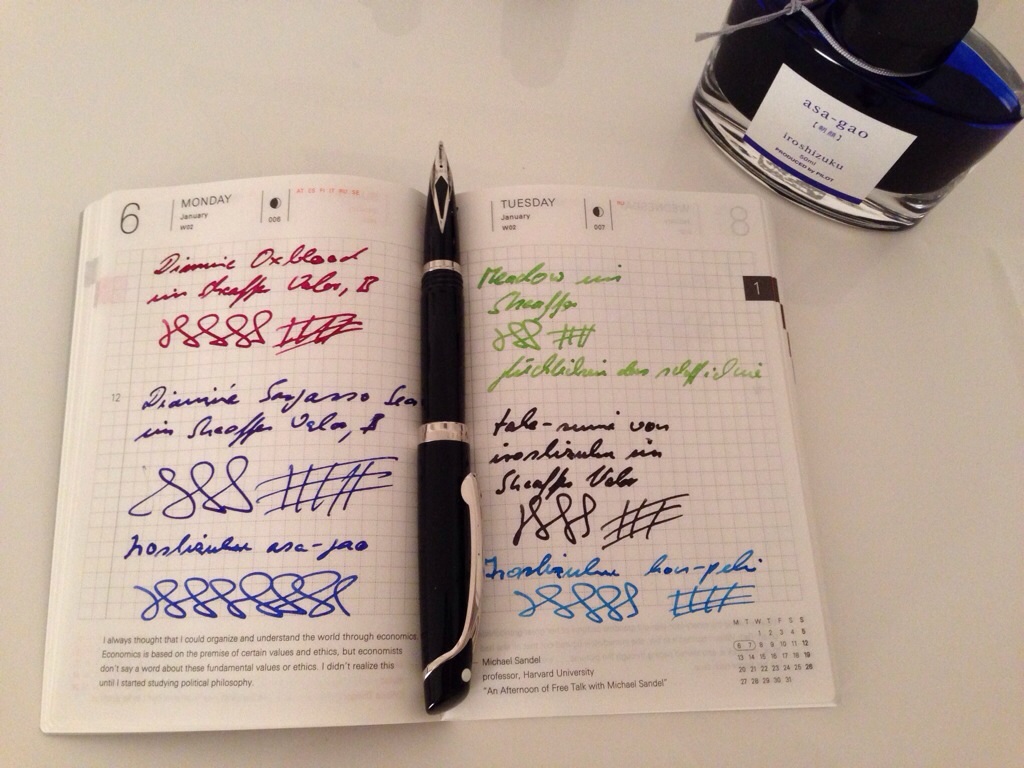 6
MONDAY
January
W02
006
Diamine Oxblood
in Sheaffer Valor, B
12
Diamine Sargasso Sea
in Sheaffer Valor, B
Iroshizuku asa-gao
I always thought that I could organize and understand the world through economics.
Economics is based on the premise of certain values and ethics, but economists
don't say a word about these fundamental values or ethics. I didn't realize this
until I started studying political philosophy.
TUESDAY
January
W02
007
8
1
Meadow in
Sheaffer
take-sumi von
iroshizuku in
Sheaffer Valor
Iroshizuku kon-peki
Michael Sandel
professor, Harvard University
"An Afternoon of Free Talk with Michael Sandel"
M T W T F S S
1 2 3 4 5
6 7 8 9 10 11 12
13 14 15 16 17 18 19
20 21 22 23 24 25 26
27 28 29 30 31
asa-gao
【朝顔】
iroshizuku
50ml
PRODUCED by PILOT